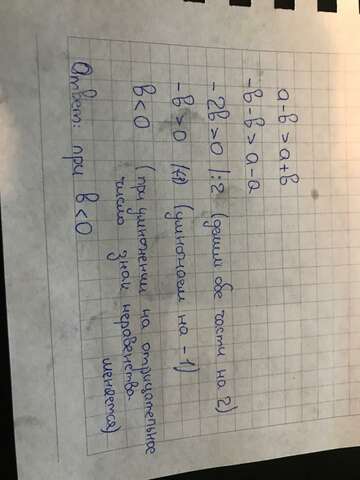 a-b>a+b
-b-b>a-a
-2b>0 |:2 (делим обе части на 2)
-b>0 (умножаем на -1)
b<0 (при умножении на отрицательное
число знак неравенства
меняется)
Ответ: при b<0